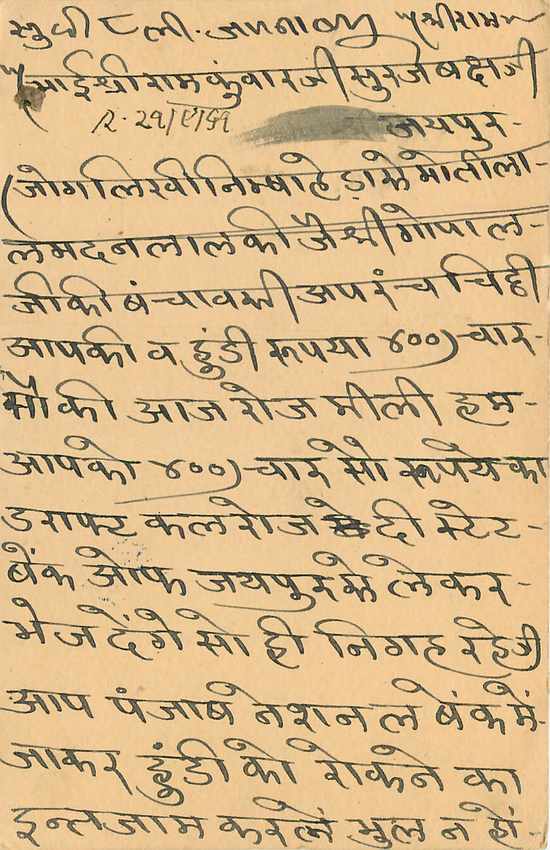 ॥श्रीराम॥
भाई श्रीरामकुंवारजी सुरजबक्षजी
जयपुर-
जोग लिखी निम्बाहेड़ा से मोतीला-
लमदनलाल की जै श्री गोपाल-
जी की बंचावसी अपरंच चिठी
आपकी व हुंडी रूपया ४००) चार-
सौ की आज रोज मीली हम-
आपको ४००) चार सौ रूपये का
डराफ्ट कल रोज दी स्टेट-
बेंक ओफ जयपुर के लेकर-
भेज देंगे सो ही निगह रहे
आप पंजाब नेशनल बेंक में-
जाकर हुंडी को रोकने का
इन्तजाम करलें भुल न हो-